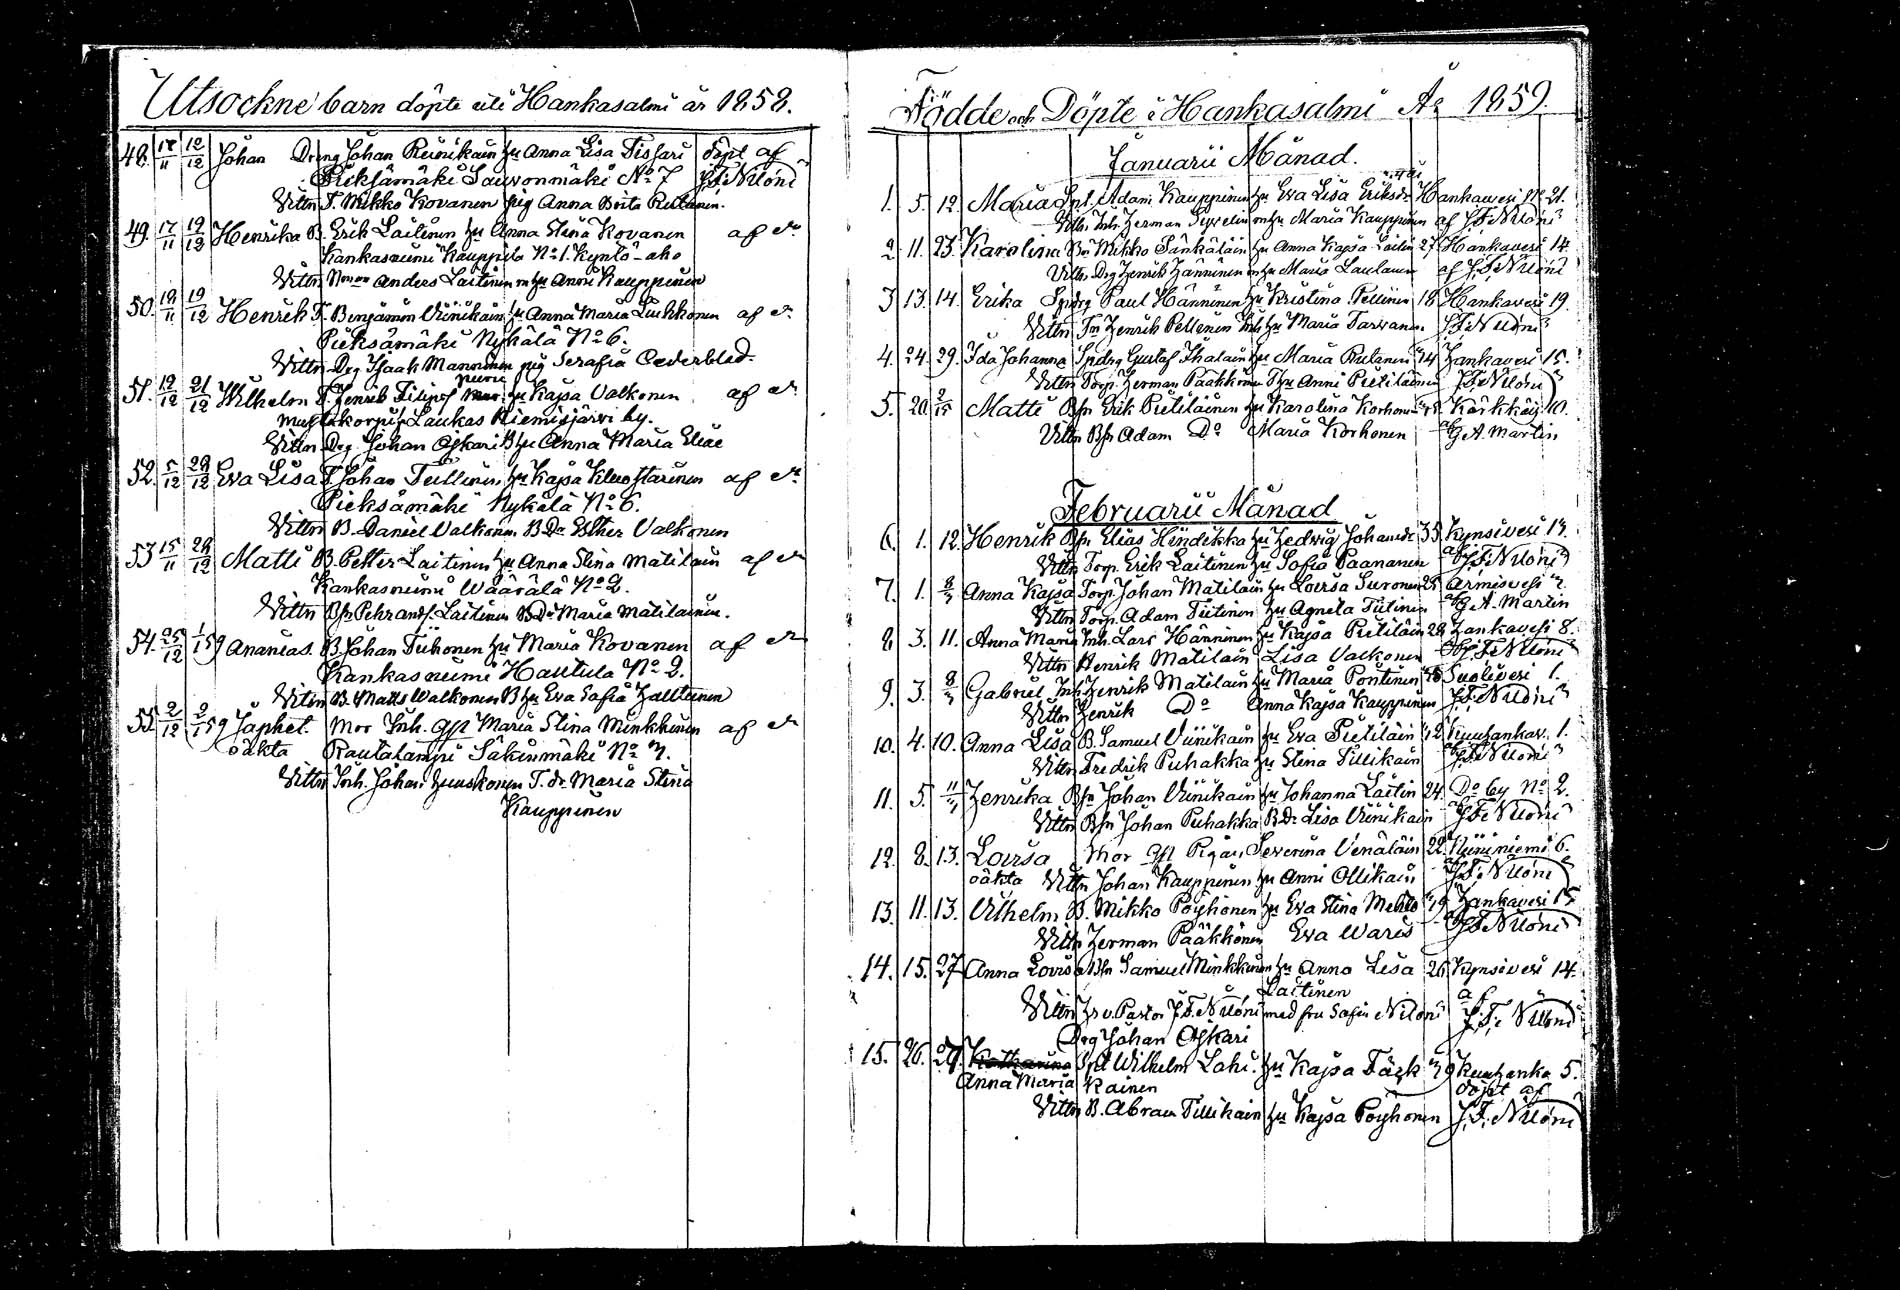 Utsockne barn döpte uti Hankasalmi år 1858.
48. 17/11 12/12 Johan Dreng Johan Reinikain hu Anna Lisa Tissari döpt af
Pieksämäki Sauvonmäki No 7 J.F. Niloni
Vittn T. Mikko Kovanen pig Anna Brita Rutanen.
49. 17/11 19/12 Henrika B. Erik Laitinen hu Anna Stina Kovanen af do
Kankasniemi Kauppila No 1. Kyntö-aho
Vittn Anders Laitinen m hu Anni Kauppinen
50. 18/11 19/12 Henrik T. Benjamin Viinikain hu Anna Maria Liukkonen af do
Pieksämäki Nykälä No 6.
Vittn Drg Isaak Manninen pig Serafia Cederblad.
51. 19/12 21/12 Wilhelm T. Henrik Filipof hu Kajsa Valkonen af do
Laukas Niemisjärvi by.
Vittn Drg Johan Oskari B hu Anna Maria Eliae
52. 5/12 28/12 Eva Lisa T. Johan Tullinen hu Kajsa af do
Pieksämäki Nykälä No 6.
Vittn B. Daniel Valkonen B. Dr Esther Valkonen
53 15/11 28/12 Matti B. Petter Laitinen hu Anna Stina Matilain af do
Kankasniemi Wäärälä No 2.
Vittn Bn Pehr And. Laitinen B Dr Maria Matilainen.
54. 25/12 1/1 59 Ananias. B. Johan Tiihonen hu Maria Kovanen af do
Kankasniemi Hautula No 2.
Vittn B. Matts Walkonen B hu Eva Sofia Halttunen
55. 2/12 2/1 59 Japhet. Mor Inh. gft Maria Stina Minkkinen af do
oäkta Rautalampi Säkinmäki No 7.
Vittn Inh. Johan Huuskonen T. dr Maria Stina
Kauppinen
Födde och Döpte i Hankasalmi År 1859.
Januarii Månad.
1. 5. 12. Maria Adam Kauppinen hu Eva Lisa Eriksdr Hankavesi No 21.
Vittn Inh. Herman m hu Maria Kauppinen af J.F. Niloni
2. 11. 23. Karolina Bn Mikko Pänkäläin hu Anna Kajsa Laitin 27. Hankavesi 14.
Vittn Drg Henrik Hänninen m hu Maria Lautanen af J.F. Niloni
3 13. 14. Erika Paul Hänninen hu Kristina Pellinen 18. Hankavesi 19.
Vittn Henrik Pellinen Inh hu Maria Tarvanen J.F. Niloni
4. 24. 29. Ida Johanna Gustaf Ihalain hu Maria Rutanen 24 Hankavesi 15.
Vittn Torp. Herman Pääkkönen hu Anni Pietiläinen J.F. Niloni
5. 20. 2/15 Matti Bn Erik Pietiläinen hu Karolina Korhonen Kärkkäis 10.
Vittn Bn Adam Do Maria Korhonen af G.A. Martin
Februarii Månad
6. 1. 12. Henrik Bn Elias Hindikka hu Hedvig Johansdr 33 Kynsivesi 13.
Vittn Torp. Erik Laitinen hu Sofia Paananen af J.F. Niloni
7. 1. 8/3 Anna Kajsa Torp. Johan Matilain hu Lovisa Suronen 25 Armisvesi 2.
Vittn Torp. Adam Tiitinen hu Agneta Tiitinen af G.A. Martin
8 3. 11. Anna Maria Inh. Lars Hänninen hu Kajsa Pietiläin 28 Hankavesi 8.
Vittn Henrik Matilain Lisa Valkonen af J.F. Niloni
9. 3. 8/3 Gabriel Inh Henrik Matilain hu Maria Pöntinen Suolivesi 1.
Vittn Henrik Do Anna Kajsa Kauppinen J.F. Niloni
10. 4. 10. Anna Lisa B. Samuel Viinikain hu Eva Pietiläin 42 Kuuhankav. 1.
Vittn Fredrik Puhakka hu Stina Tillikain af J.F. Niloni
11. 5. Henrika Bn Johan Viinikain hu Johanna Laitin 24. Do by No 2.
Vittn Bn Johan Puhakka B. Dr Lisa Viinikain J.F. Niloni
12. 8. 13. Lovisa Mor gft Pigan, Severina Venäläin 22. Niininiemi 6.
oäkta Vittn Johan Kauppinen hu Anni Ollikain J.F. Niloni
13. 11. 13. Vilhelm B. Mikko Pöyhönen hu Eva Stina Mehto Hankavesi 15
Vittn Herman Pääkkönen Eva Waris af J.F. Niloni
14. 15. 27 Anna Lovisa Bn Samuel Minkkinen hu Anna Lisa 26. Kynsivesi 14.
Laitinen af
Vittn Hr v. Pastor J.F. Niloni med fru Sofia Niloni J.F. Niloni
Drg Johan Oskari
15. 26. 27. Katharina Wilhelm Laki- hu Kajsa Kuuhanka 5.
Anna Maria kainen döpt af
Vittn B. Abram Tillikain hu Kajsa Pöyhönen J.F. Niloni